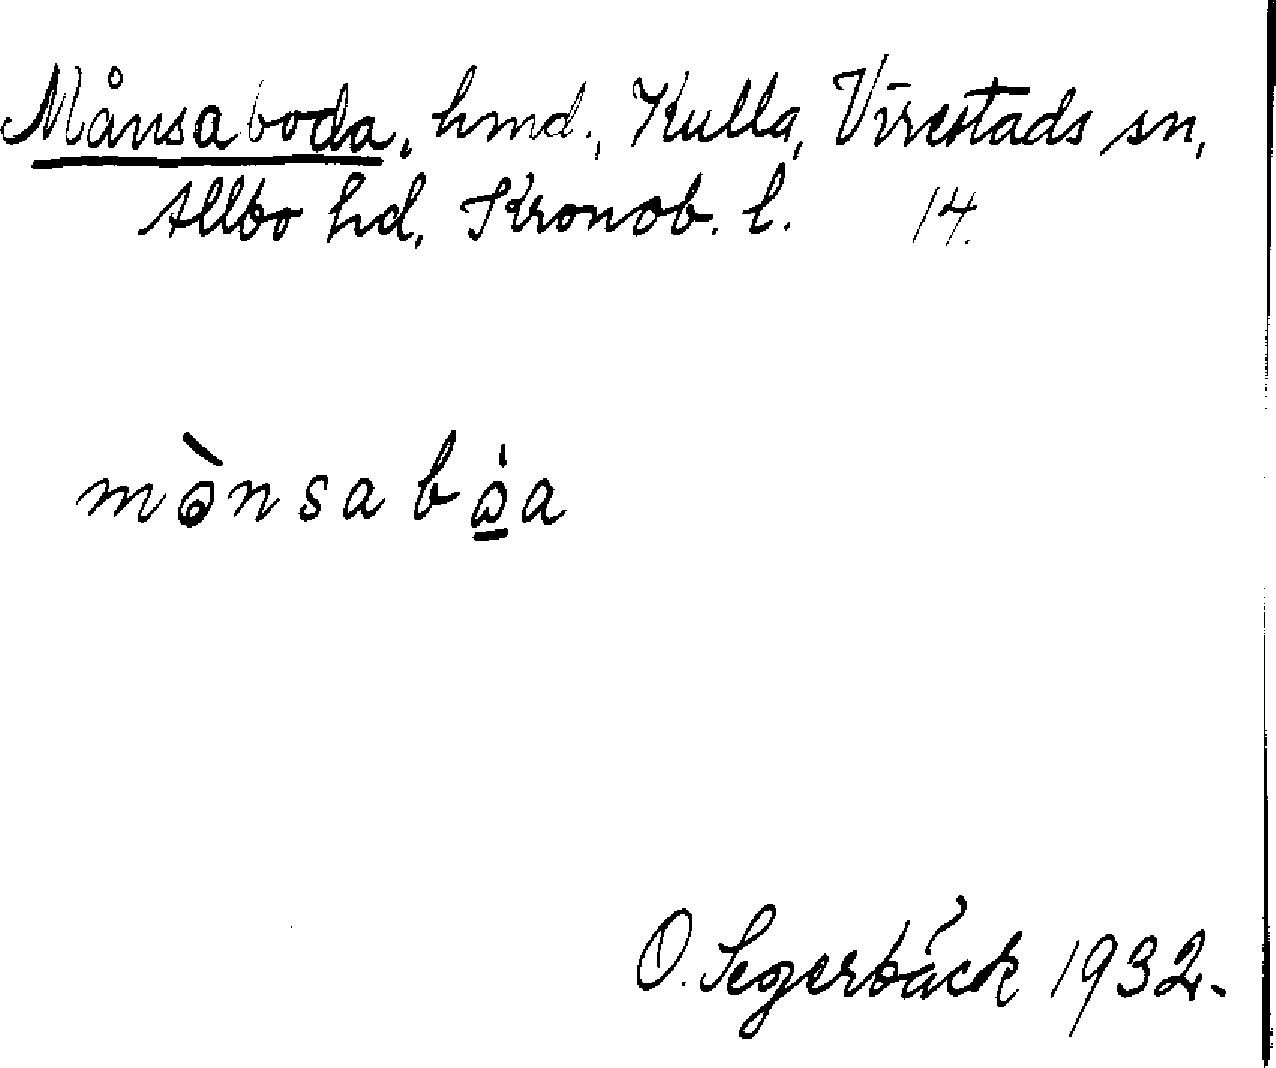 Månsaboda, hmd., Kulla, Virestads sn,
Allbo hd, Kronob. l. 14.
mɔ̀nsabɷ̲̇a
O. Segerbäck 1932.